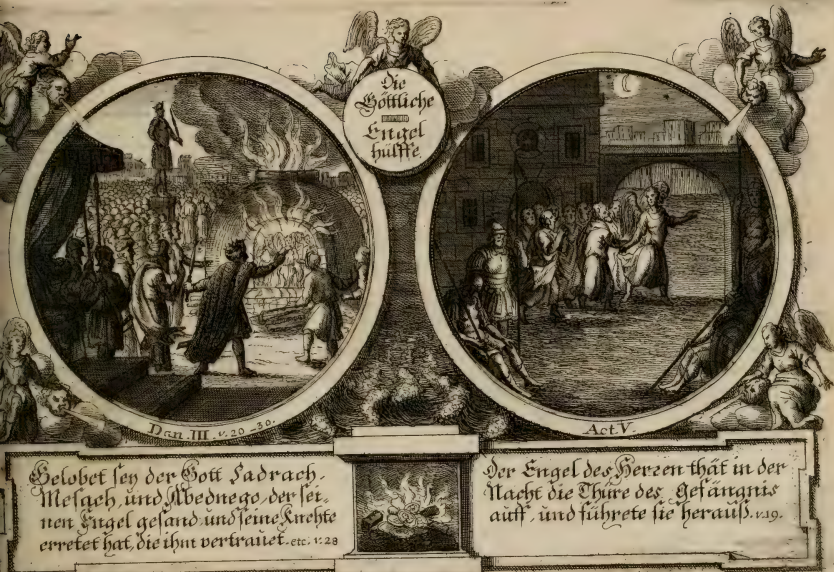 Die
Göttliche
Engel
hülffe.
Dan. III. v. 20 - 30.
Act. V.
Gelobet sey der Gott Sadrach.
Mesach, und Abednego, der sei-
nen Engel gesand und seine Knehte
erretet hat, die ihm vertrauet. etc. v. 28
Der Engel des Herren thät in der
Nacht die Thüre des Gefängnis
auff, und führete sie herauß. v. 19.